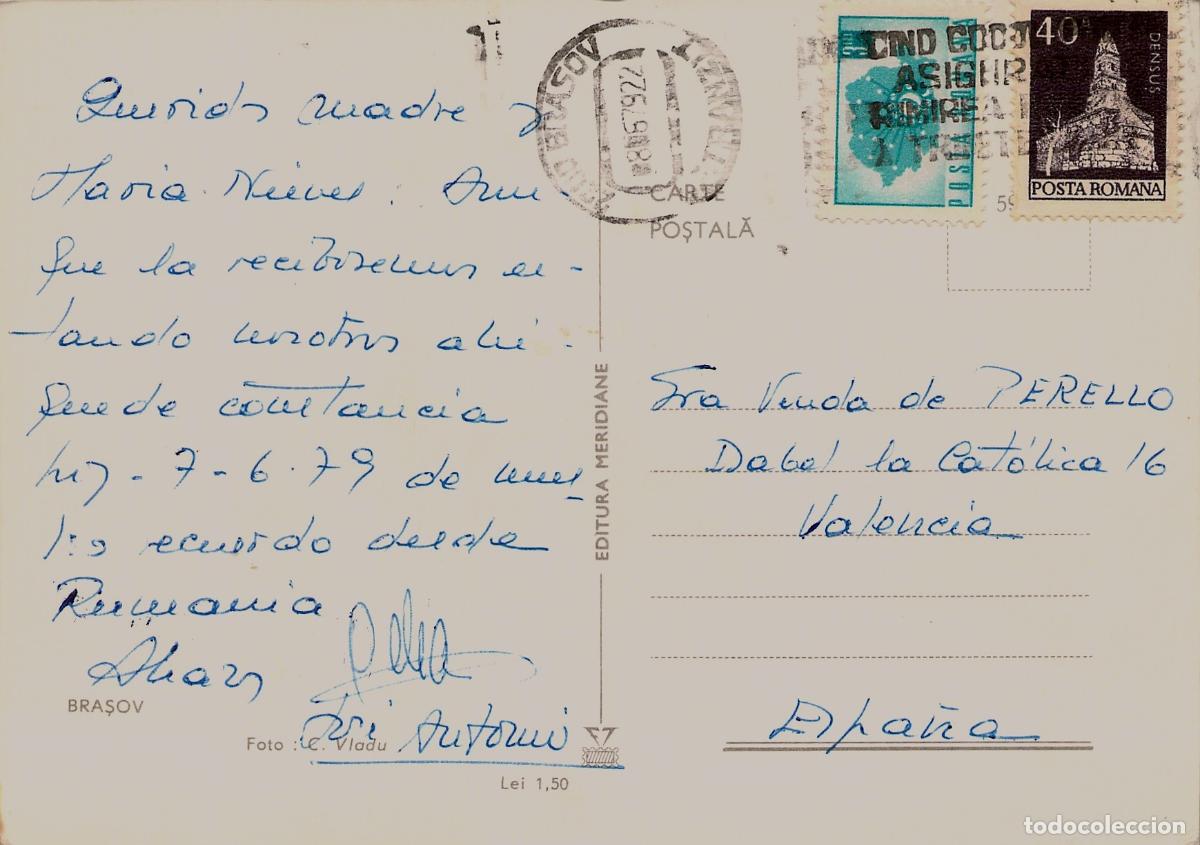 Querida madre y
Maria Nieves: Aun
que la recibiremos es-
tando nosotros ahi
quede constancia
hoy - 7-6-79 de nues
tro recuerdo desde
Rumania
Antonio
BRAȘOV
Foto : C. Vladu
Lei 1,50
EDITURA MERIDIANE
BRASOV
CIND
ASIGUR
TRIMIREA
POSTA ROMANA
40
DENSUS
POSTA ROMANA
CARTE
POȘTALĂ
59
Sra Viuda de PERELLO
Isabel la Católica 16
Valencia
España
todocoleccion